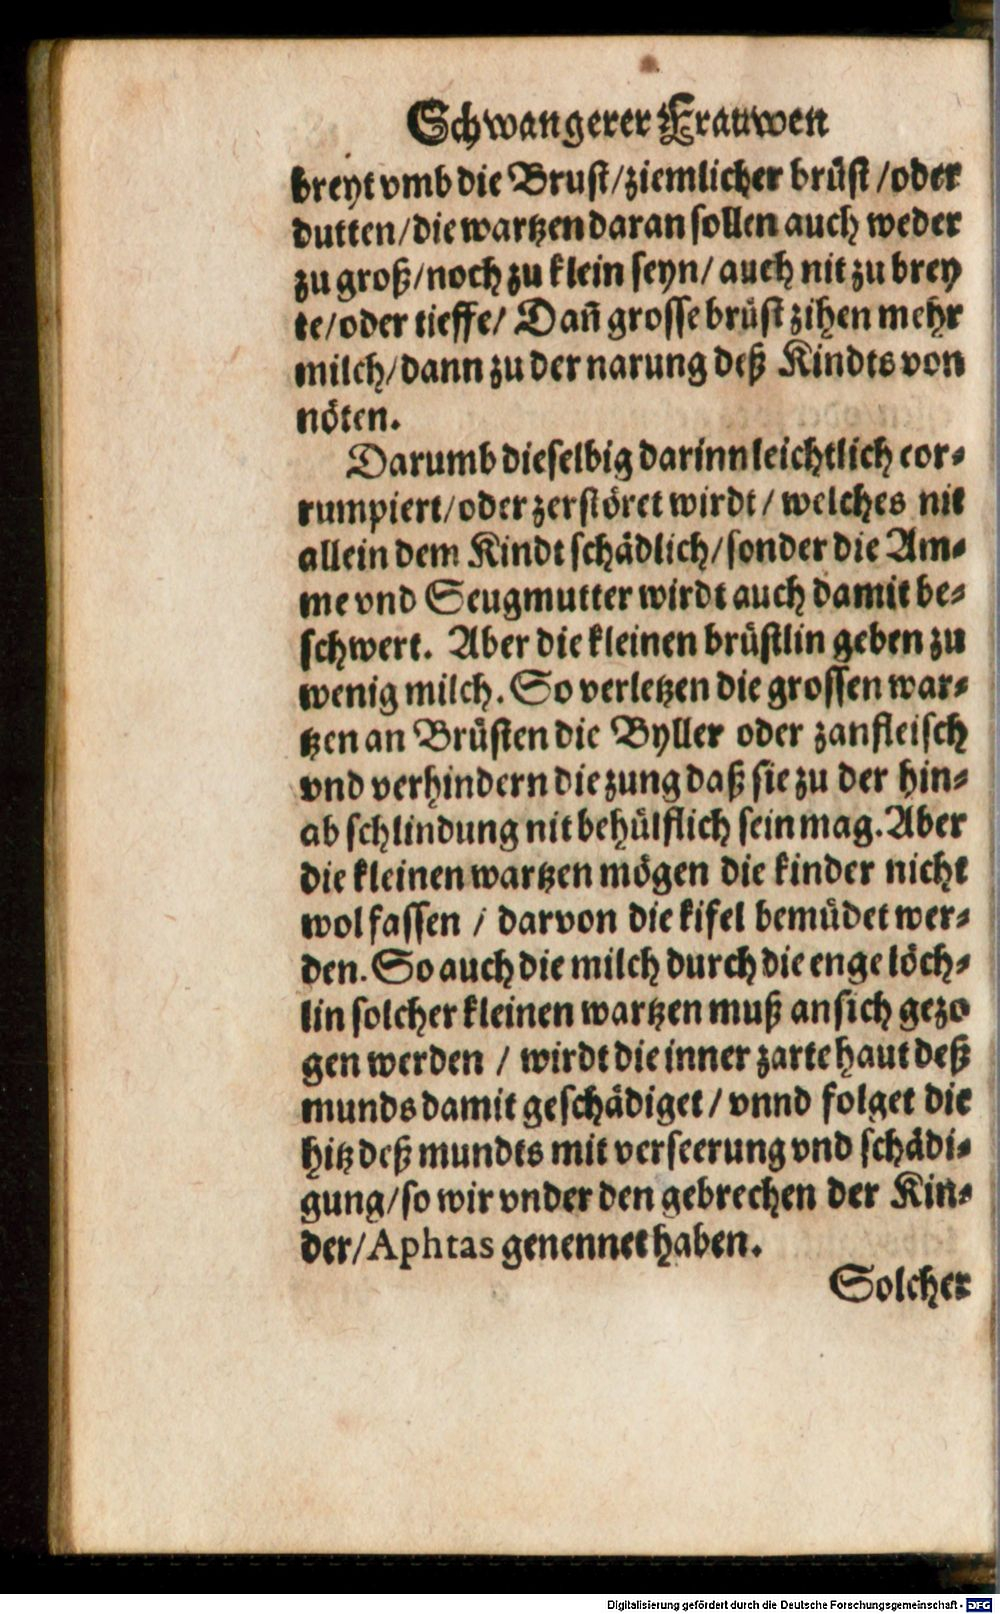 Schwangerer Frauwen
breyt vmb die Brust/ziemlicher brüst/oder
dutten/die wartzen daran sollen auch weder
zu groß/noch zu klein seyn/auch nit zu brey
te/oder tieffe/ Dañ grosse brüst zihen mehr
milch/dann zu der narung deß Kindts von
nöten.
Darumb dieselbig darinn leichtlich cor-
rumpiert/oder zerstöret wirdt/welches nit
allein dem Kindt schädlich/sonder die Am-
me vnd Seugmutter wirdt auch damit be-
schwert. Aber die kleinen brüstlin geben zu
wenig milch. So verletzen die grossen war-
tzen an Brüsten die Byller oder zanfleisch
vnd verhindern die zung daß sie zu der hin-
ab schlindung nit behülflich sein mag. Aber
die kleinen wartzen mögen die kinder nicht
wol fassen / darvon die kifel bemüdet wer-
den. So auch die milch durch die enge löch-
lin solcher kleinen wartzen muß an sich gezo
gen werden / wirdt die inner zarte haut deß
munds damit geschädiget/vnnd folget die
hitz deß mundts mit verseerung vnd schädi-
gung/so wir vnder den gebrechen der Kin-
der/Aphtas genennet haben.
Solcher
Digitalisierung gefördert durch die Deutsche Forschungsgemeinschaft - DFG